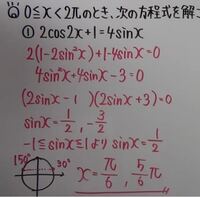 0≦x<2πのとき、次の方程式を解
① 2cos2x+1=4sinx
2(1-2sin²x)+1-4sinx=0
4sin²x+4sinx-3=0
(2sinx-1)(2sinx+3)=0
sinx=1/2, -3/2
-1≦sinx≦1より sinx=1/2
150° 30° x=π/6, 5/6π